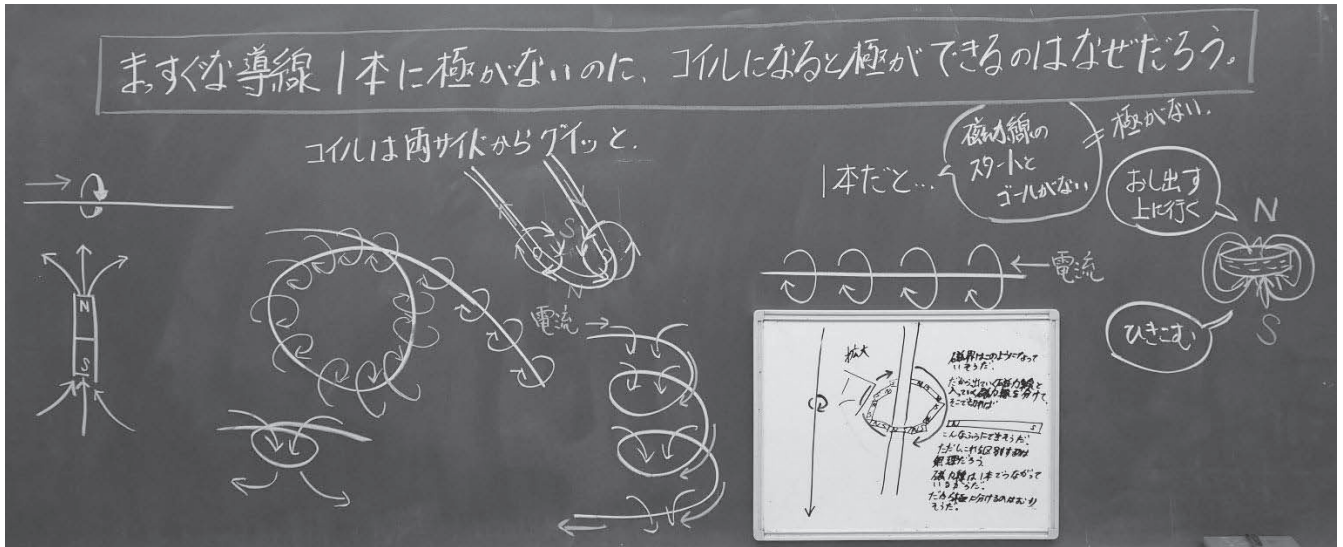 まっすぐな導線1本に極がないのに、コイルになると極ができるのはなぜだろう。
コイルは両サイドからグイッと.
N
S
S
N
電流
1本だと…
磁力線の
スタートと
ゴールがない
=極がない.
おし出す
上に行く
N
S
ひきこむ
電流
拡大
磁界はこのようになって
いそうだ.
だから出ていく磁力線と
入っていく磁力線を分けて、
そこで切れば
N S
こんなふうにできそうだ.
ただし、これを区別するのは
無理だろう.
磁力線は1本でつながって
いるからだ.
だから極に分けるのはむり
そうだ.